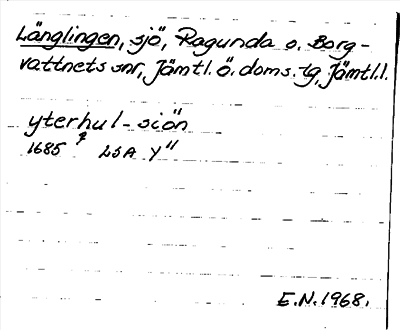 Länglingen, sjö, Ragunda o. Borg-
vattnets snr, Jämtl. ö. doms. tg, Jämtl.l.
yterhul-siön
1685 LSA Y"
E.N. 1968.